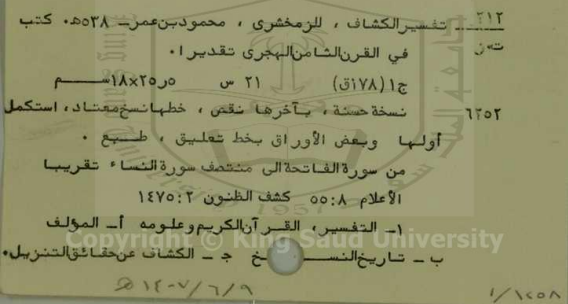 ٢١٢ تفسير الكشاف ، للزمخشرى ، محمود بن عمر ـ ٥٣٨هـ . كتب
ت٠ز في القرن الثامن الهجرى تقديرا ٠
ج١ (١٧٨ق) ٢١ س ٢٥ر٥×١٨ســـم
٦٢٥٢ نسخة حسنة ، بآخرها نقص ، خطها نسخ معتاد ، استكمل
أولها وبعض الأوراق بخط تعليق ، طــبع ٠
من سورة الفاتحة الى منتصف سورة النساء تقريبا
الأعلام ٨:٥٥ كشف الظنون ٢:١٤٧٥
١ـ التفسير، القرآن الكريم وعلومه أ ـ المؤلف
ب ـ تاريخ النســـخ جـ ـ الكشاف عن حقائق التنزيل٠
Copyright © King Saud University
١٤٠٧/٦/٩ هـ
1957